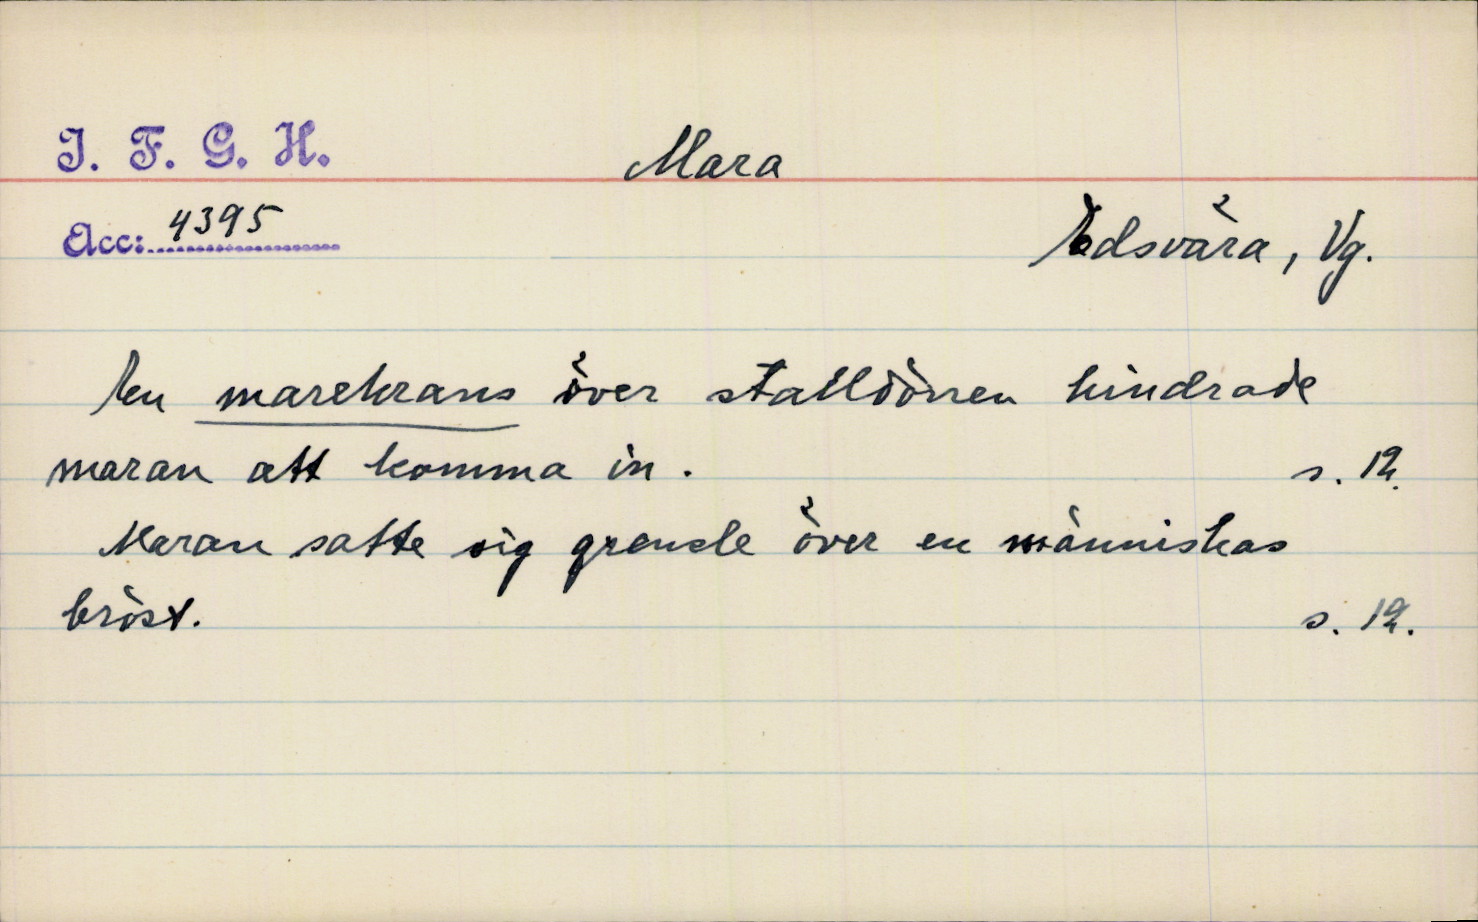 I. F. G. H.
Mara
Acc: 4395
Edsvära, Vg.
En marekrans över stalldörren hindrade
maran att komma in. s. 12.
Maran satte sig grensle över en människas
bröst. s. 12.